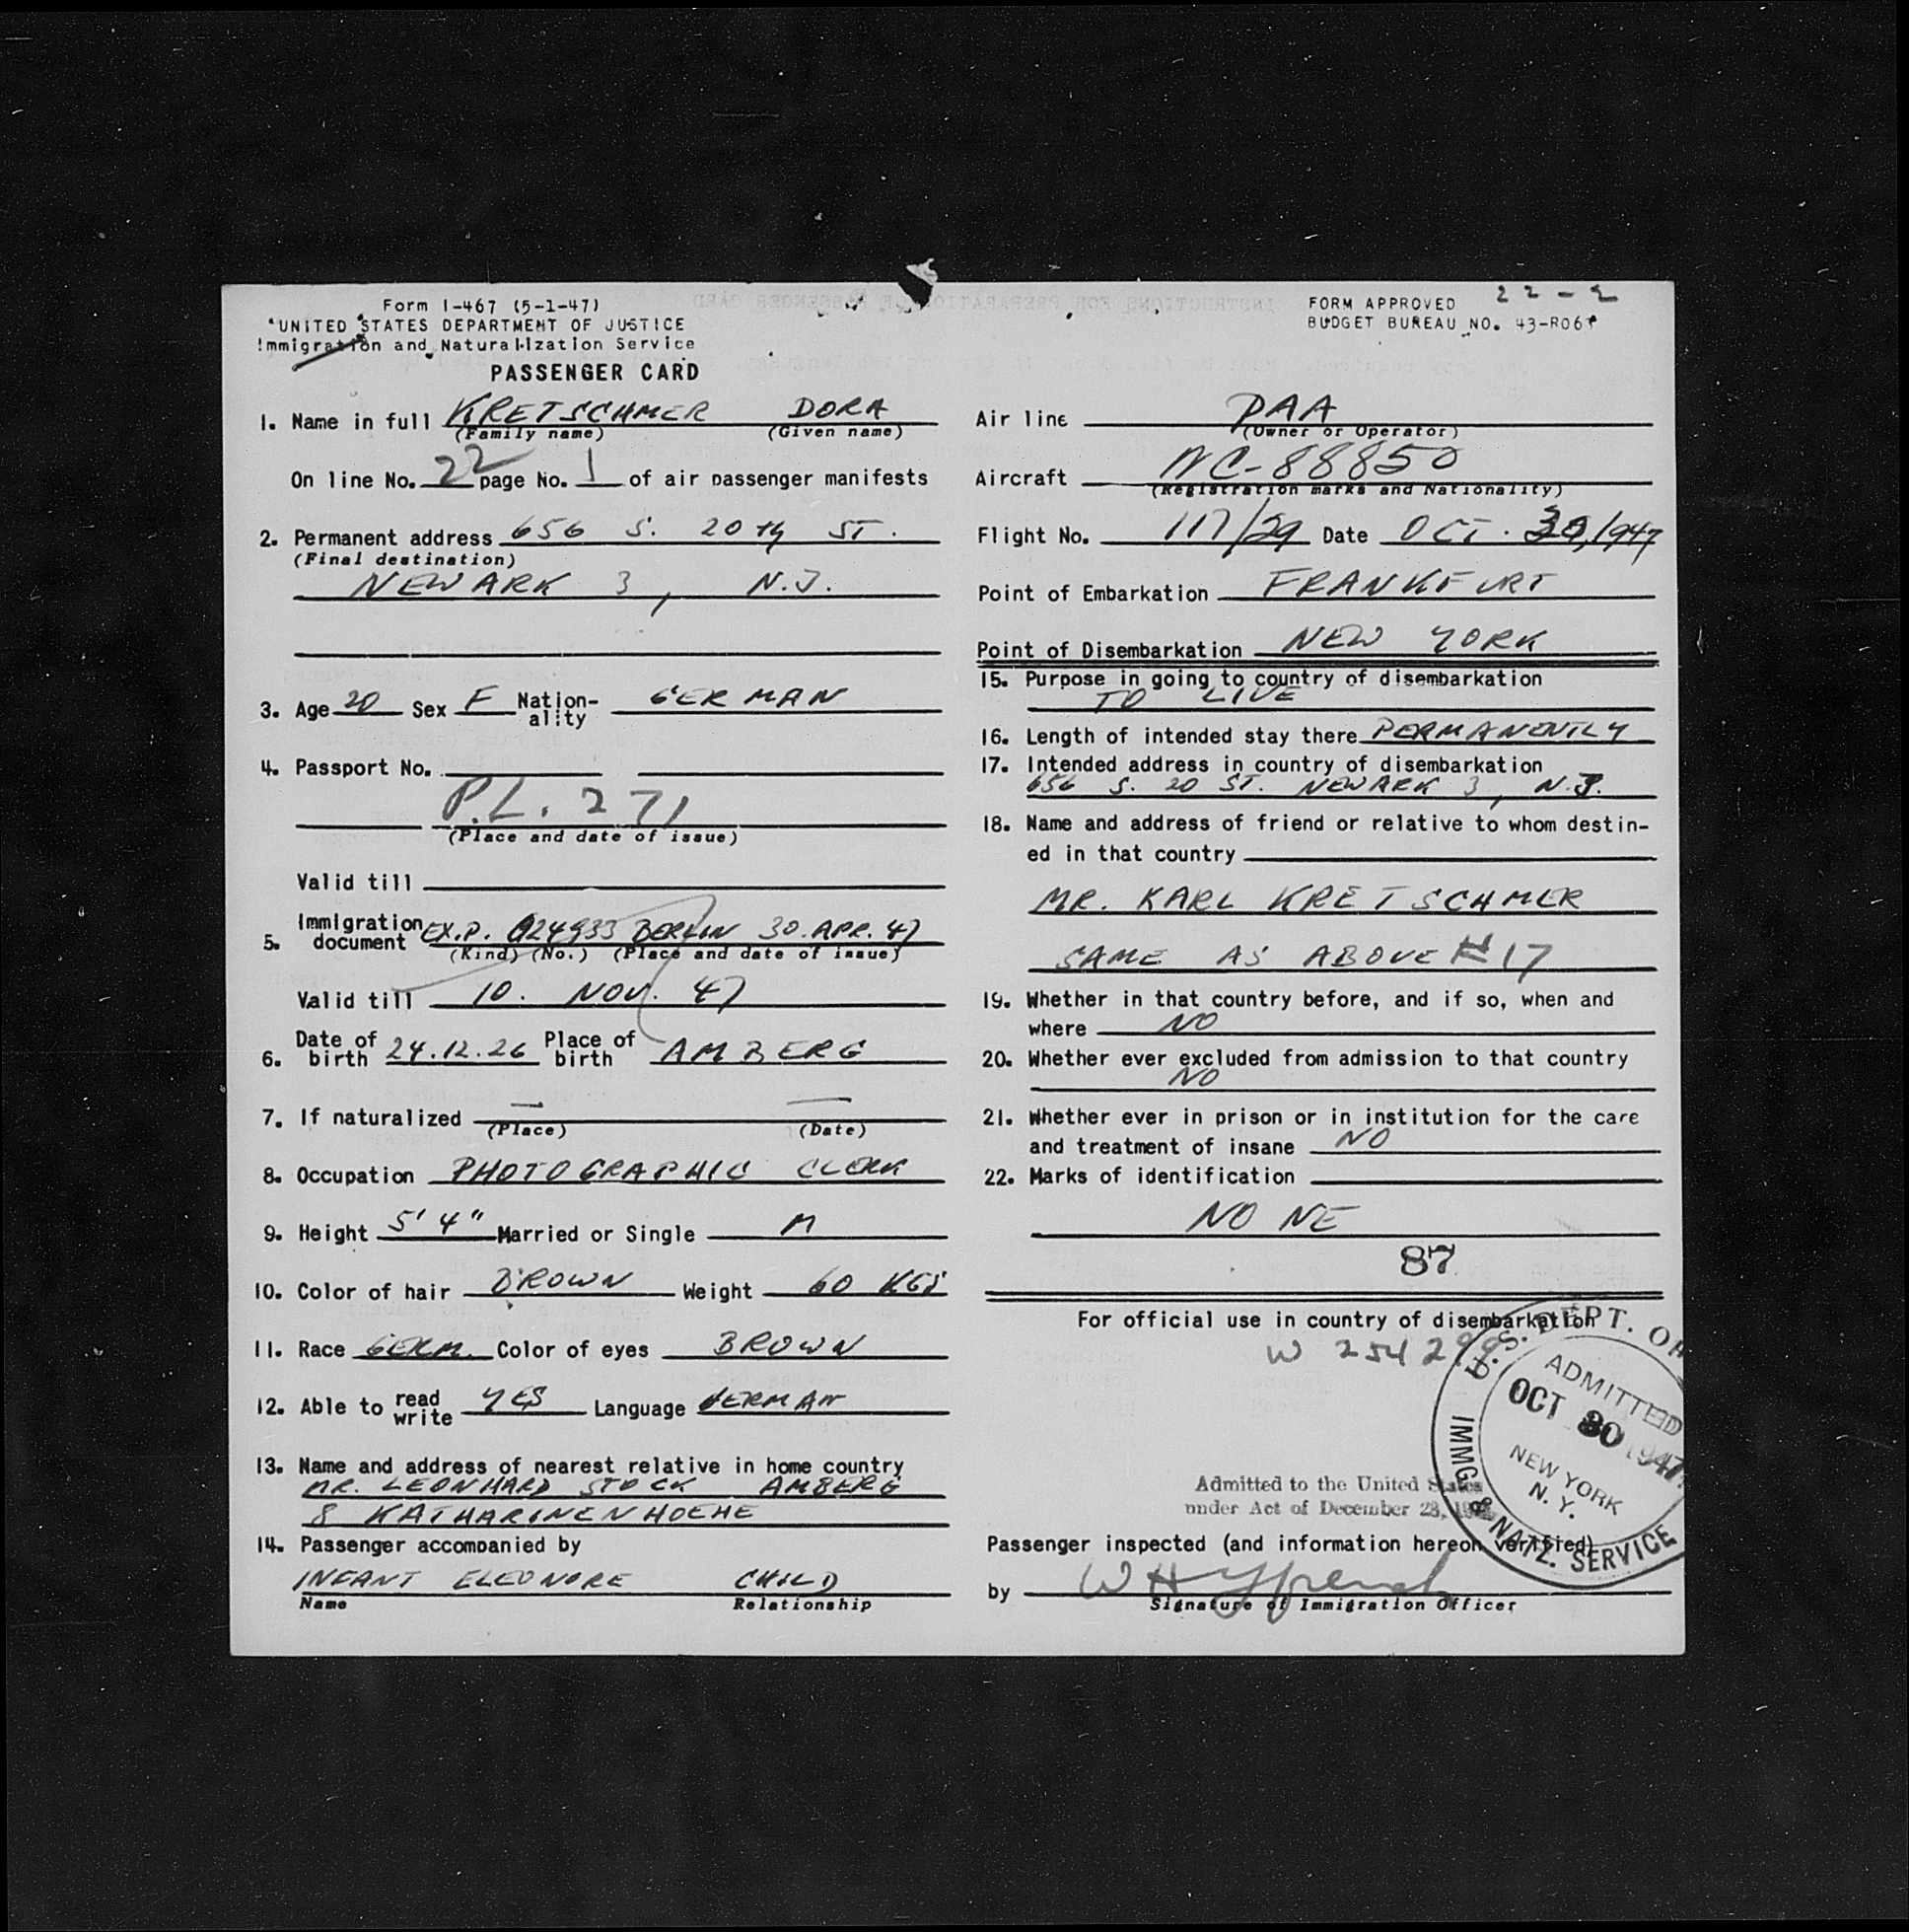 Form I-467 (5-1-47)
UNITED STATES DEPARTMENT OF JUSTICE
Immigration and Naturalization Service
PASSENGER CARD
22-2
FORM APPROVED
BUDGET BUREAU NO. 43-R061
1. Name in full KRETSCHMER DORA
(Family name) (Given name)
On line No. 22 page No. 1 of air passenger manifests
2. Permanent address 656 S. 20TH ST.
(Final destination)
NEWARK 3, N.J.
3. Age 20 Sex F Nation-ality GERMAN
4. Passport No.
P.L. 271
(Place and date of issue)
Valid till
5. Immigration document EX.P. 024933 BERLIN 30. APR. 47
(Kind) (No.) (Place and date of issue)
Valid till 10. NOV. 47
6. Date of birth 24.12.26 Place of birth AMBERG
7. If naturalized — —
(Place) (Date)
8. Occupation PHOTOGRAPHIC CLERK
9. Height 5' 4" Married or Single M
10. Color of hair BROWN Weight 60 KGS
11. Race GERM. Color of eyes BROWN
12. Able to read write YES Language GERMAN
13. Name and address of nearest relative in home country
MR. LEONHARD STOCK AMBERG
8 KATHARINENHOEHE
14. Passenger accompanied by
INFANT ELEONORE CHILD
Name Relationship
Air line PAA
(Owner or Operator)
Aircraft NC-88850
(Registration marks and Nationality)
Flight No. 117/29 Date OCT. 30, 1947
Point of Embarkation FRANKFURT
Point of Disembarkation NEW YORK
15. Purpose in going to country of disembarkation
TO LIVE
16. Length of intended stay there PERMANENTLY
17. Intended address in country of disembarkation
656 S. 20 ST. NEWARK 3, N.J.
18. Name and address of friend or relative to whom destin-
ed in that country
MR. KARL KRETSCHMER
SAME AS ABOVE #17
19. Whether in that country before, and if so, when and
where NO
20. Whether ever excluded from admission to that country
NO
21. Whether ever in prison or in institution for the care
and treatment of insane NO
22. Marks of identification
NONE
87
For official use in country of disembarkation
W 254299
U.S. DEPT. OF
ADMITTED
OCT 30 1947
NEW YORK
N. Y.
IMMG. & NATZ. SERVICE
Admitted to the United States
under Act of December 28,
Passenger inspected (and information hereon verified)
by
Signature of Immigration Officer